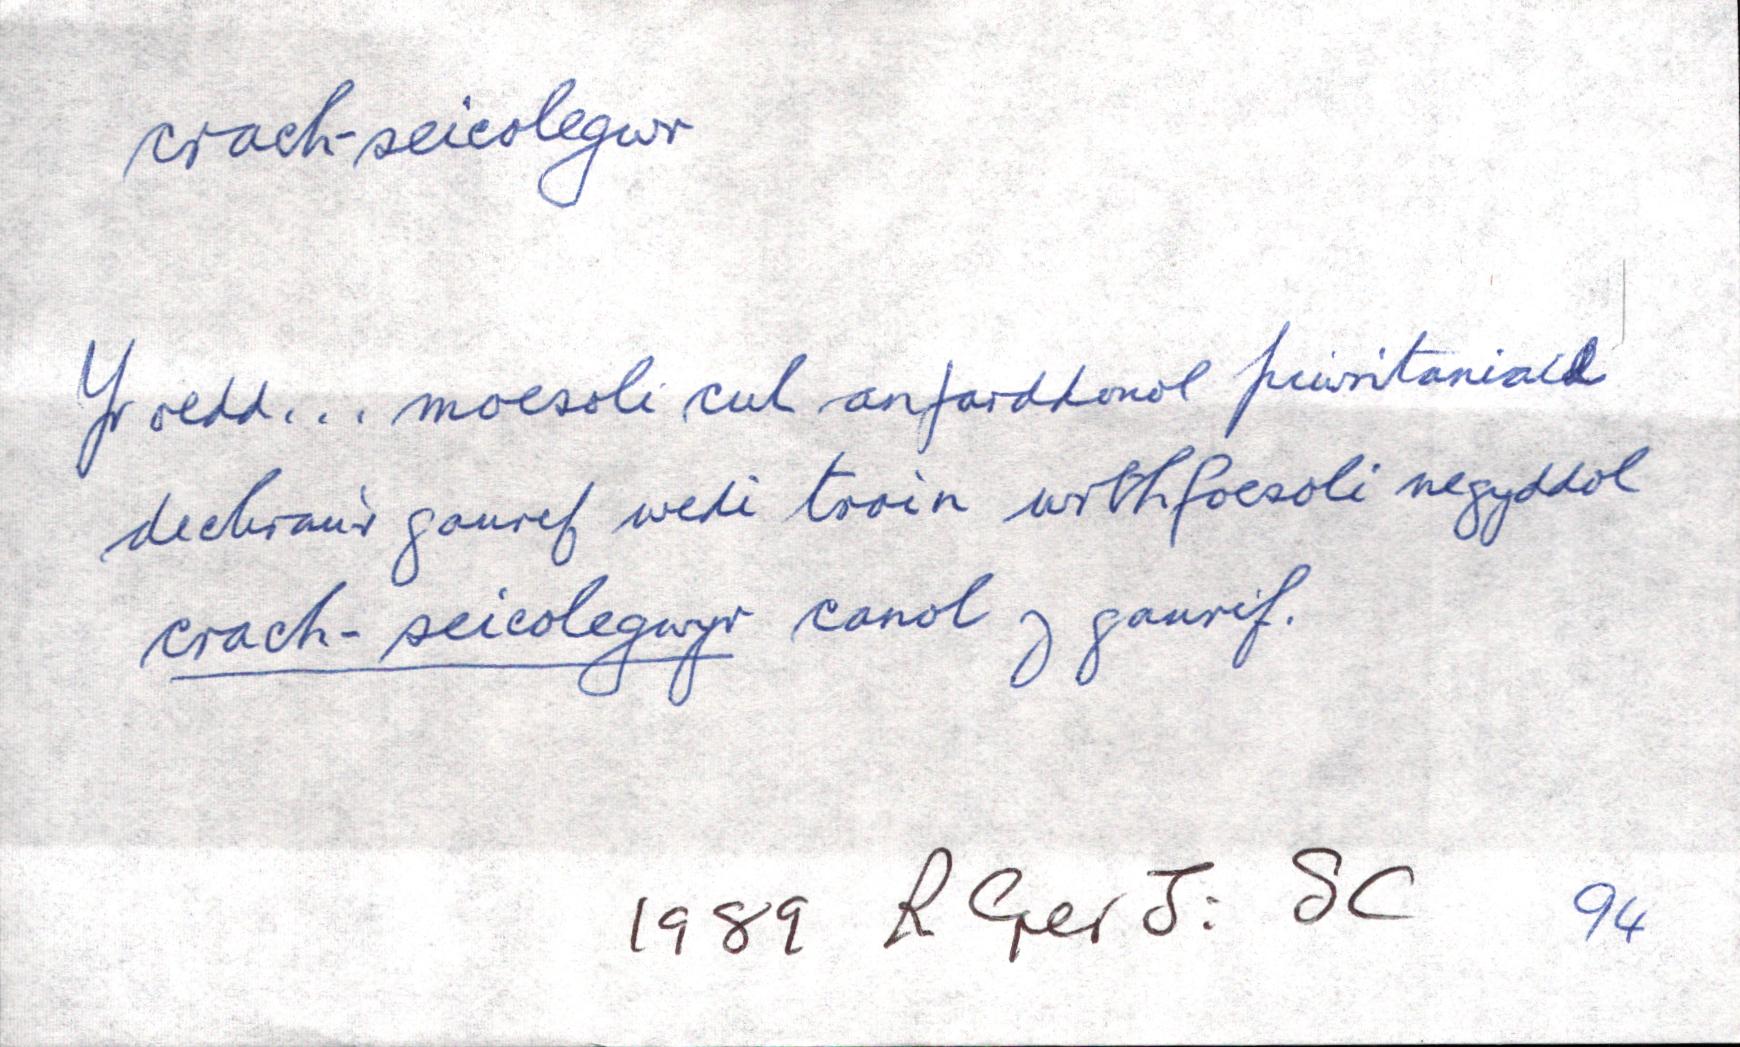 crach-seicolegwr
Yr oedd... moesoli cul anfarddonol piwritaniaid
dechrau'r ganrif wedi troi'n wrthfoesoli negyddol
crach-seicolegwyr canol y ganrif.
1989 R Ger J: SC 94